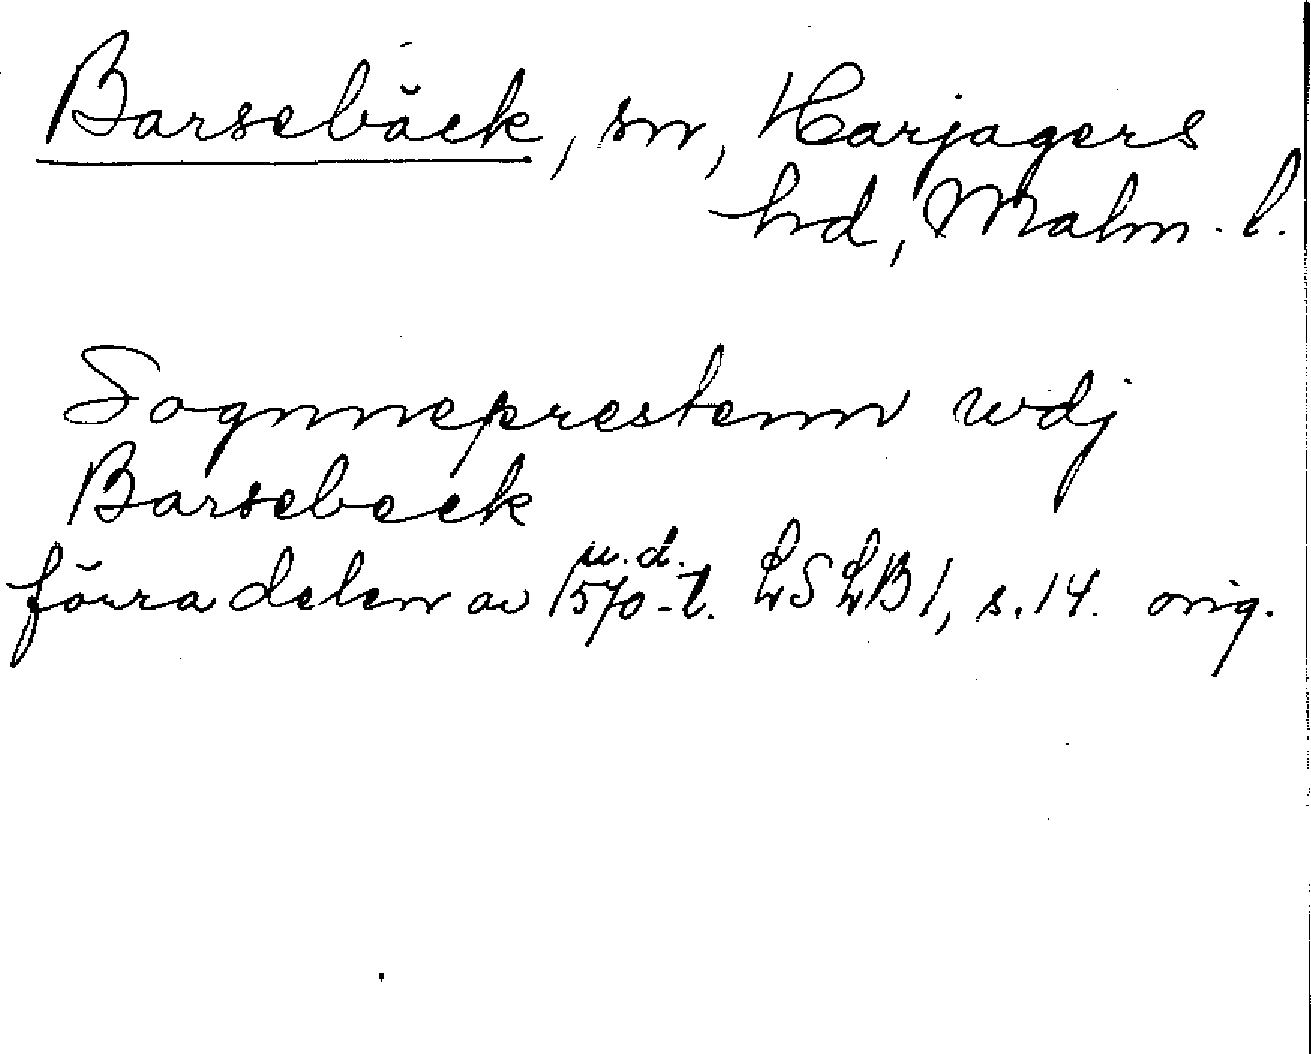 Barsebäck, sn, Harjagers
hd, Malm. l.
Sognneprestenn wdj
Barsebeck
u.d.
förra delen av 1570-t. LSLB 1, s. 14. orig.